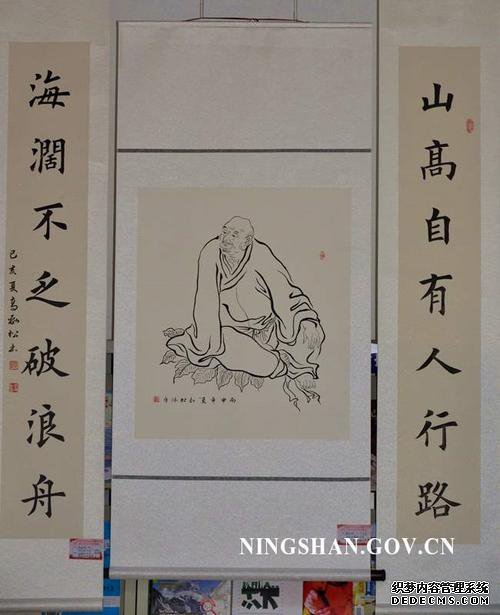 山高自有人行路
海濶不乏破浪舟
己亥夏高
NINGSHAN.GOV.CN
织梦内容管理系统
DEDECMS.COM